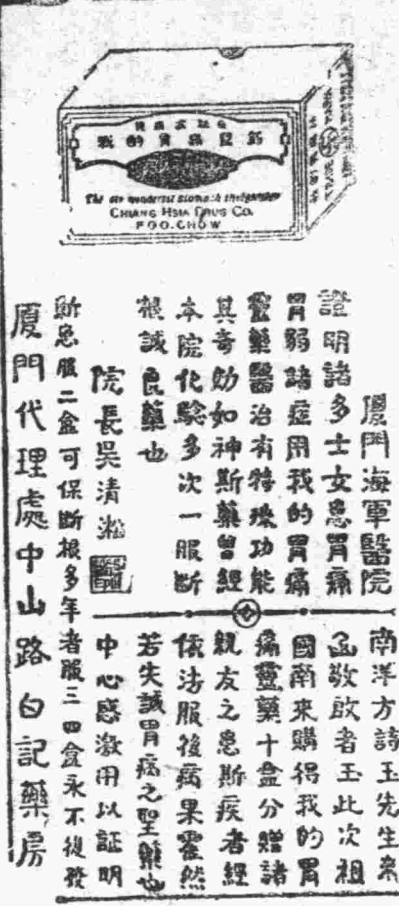 我的胃痛
CHIANG HSIA DRUG CO.
FOO.CHOW
廈門海軍醫院
證明諸多士女患胃痛
胃弱諸症用我的胃痛
靈藥醫治有特殊功能
其奇効如神斯藥曾經
本院化驗多次一服斷
根誠良藥也
院長吳清淞
南洋方詩玉先生來
函敬啟者玉此次祖
國南來購得我的胃
痛靈藥十盒分贈諸
親友之患斯疾者經
法服後病果霍然
若失誠胃病之聖藥也
中心感激用以証明
新患服二盒可保斷根多年者服三四盒永不復發
廈門代理處中山路白記藥房